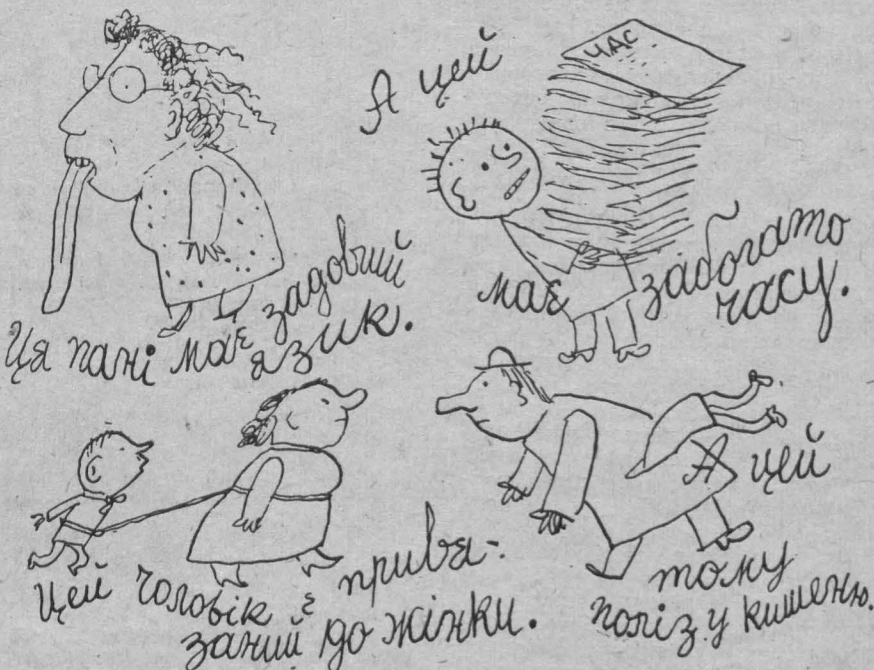 Ця пані має задовгий
язик.
ЧАС
А цей
має забогато
часу.
Цей чоловік є привя-
заний до жінки.
А цей
тому
поліз у кишеню.